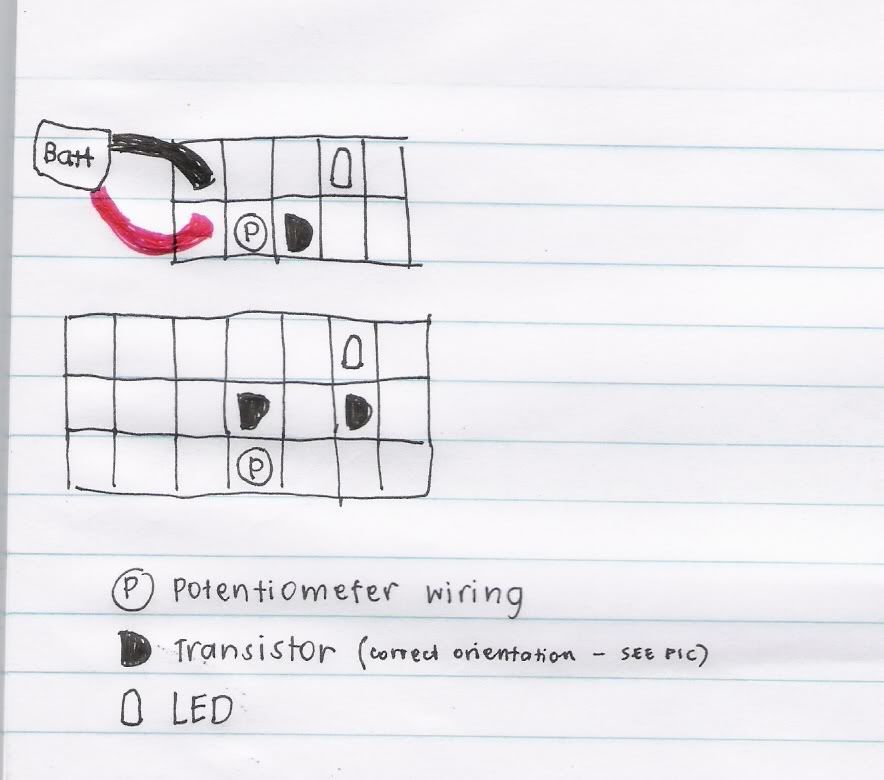 Batt
P
P
P Potentiometer wiring
Transistor (correct orientation - SEE PIC)
LED